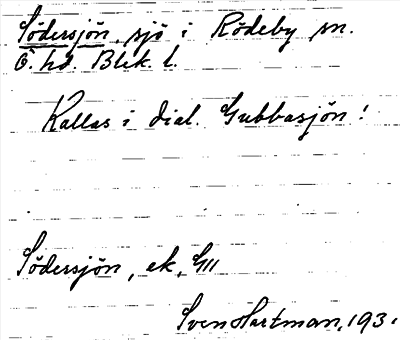 Södersjön, sjö i Rödeby sn.
Ö. hd Blek. l.
Kallas i dial. Gubbasjön!
Södersjön, ek, GIII
Sven Hartman, 193.